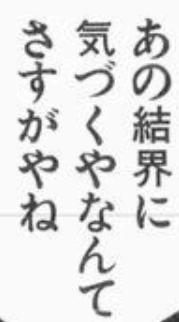 あの結界に
気づくやなんて
さすがやね